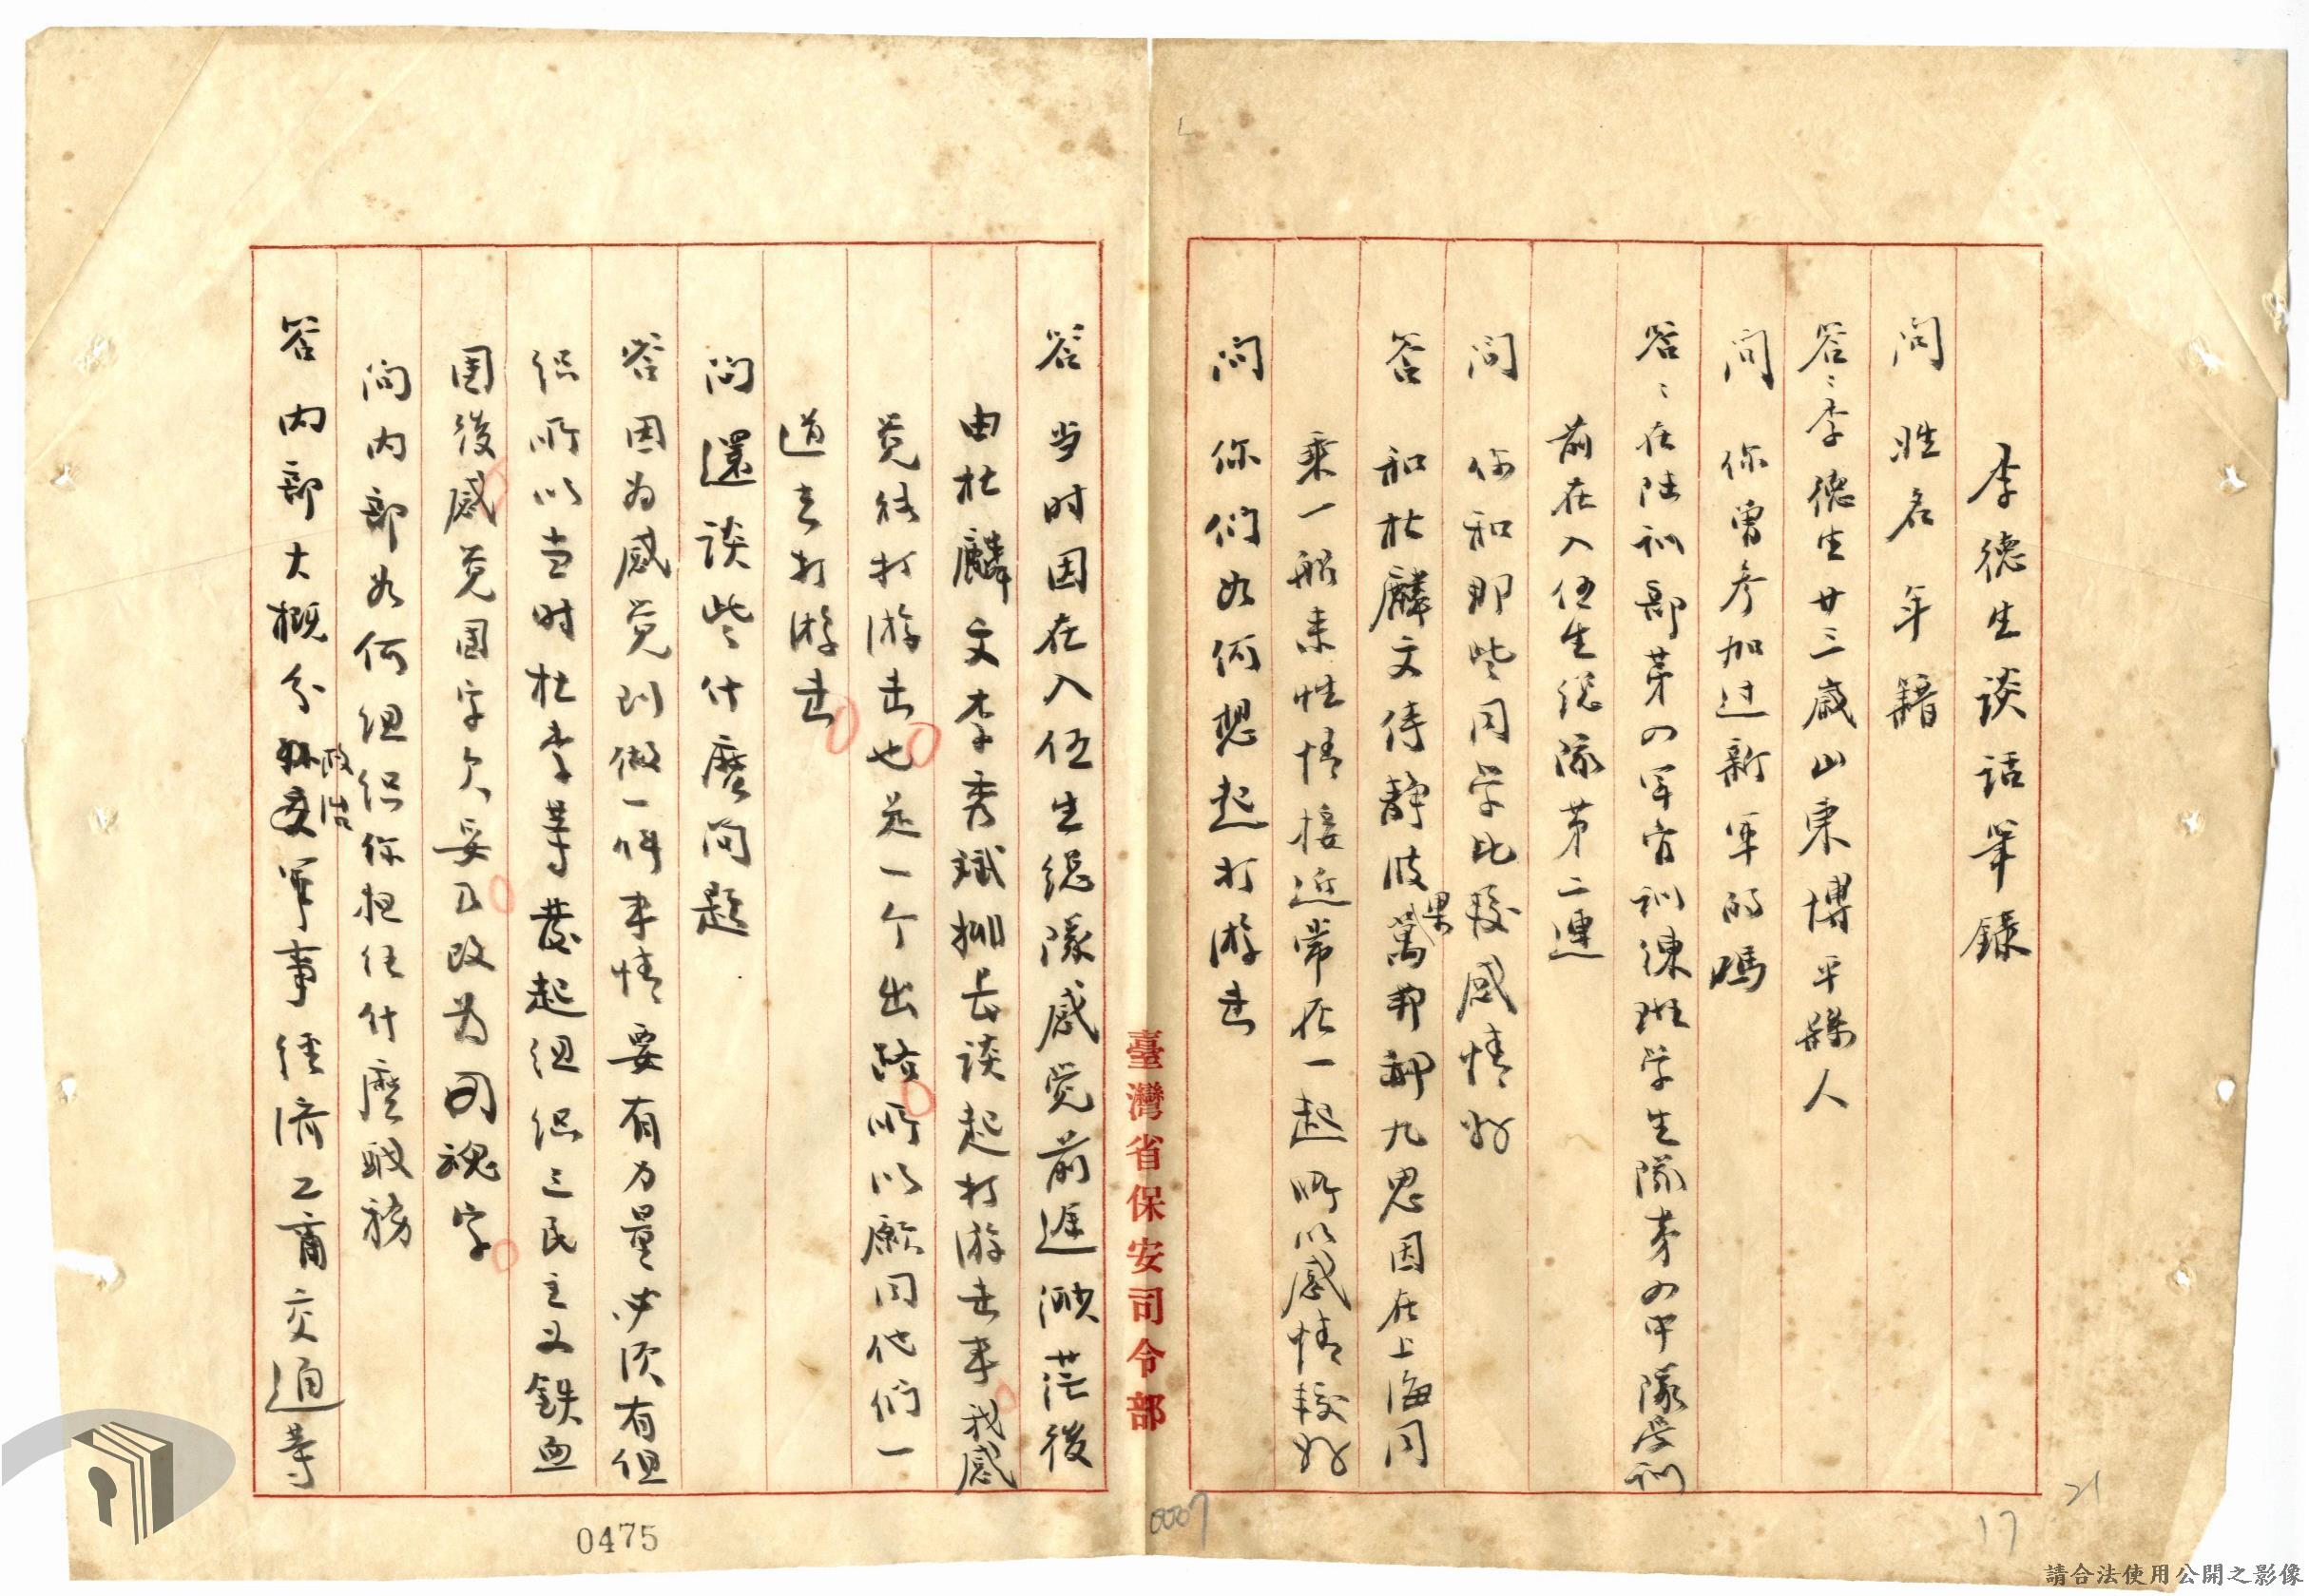 李德生談話筆錄
問 姓名年籍
答：李德生廿三歲山東博平縣人
問 你曾參加过新军的嗎
答：在陆訓部苐四军官訓練班学生隊苐四中隊受訓
前在入伍生総隊苐二連
問 你和那些同学比較感情好
答 和杜麟文侍靜波萬邦郝九思因在上海同
果
乘一船来性情接近常在一起所以感情較好
問 你们如何想起打游击
臺灣省保安司令部
答 当时因在入伍生総隊感觉前途渺茫後
由杜麟文李秀斌排长談起打游击事我感
覚絡打游击也是一个出路所以願同他们一
道去打游击
問 還談些什麼问题
答 因为感觉到做一件事情要有力量必须有组
織所以当时杜李等發起组織三民主义鉄血
團後感覚團字欠妥又改为国魂字
問 内部如何组织你担任什麼职務
答 内部大概分軍事経济工商交通等
政治
0475
0007
17
21
請合法使用公開之影像